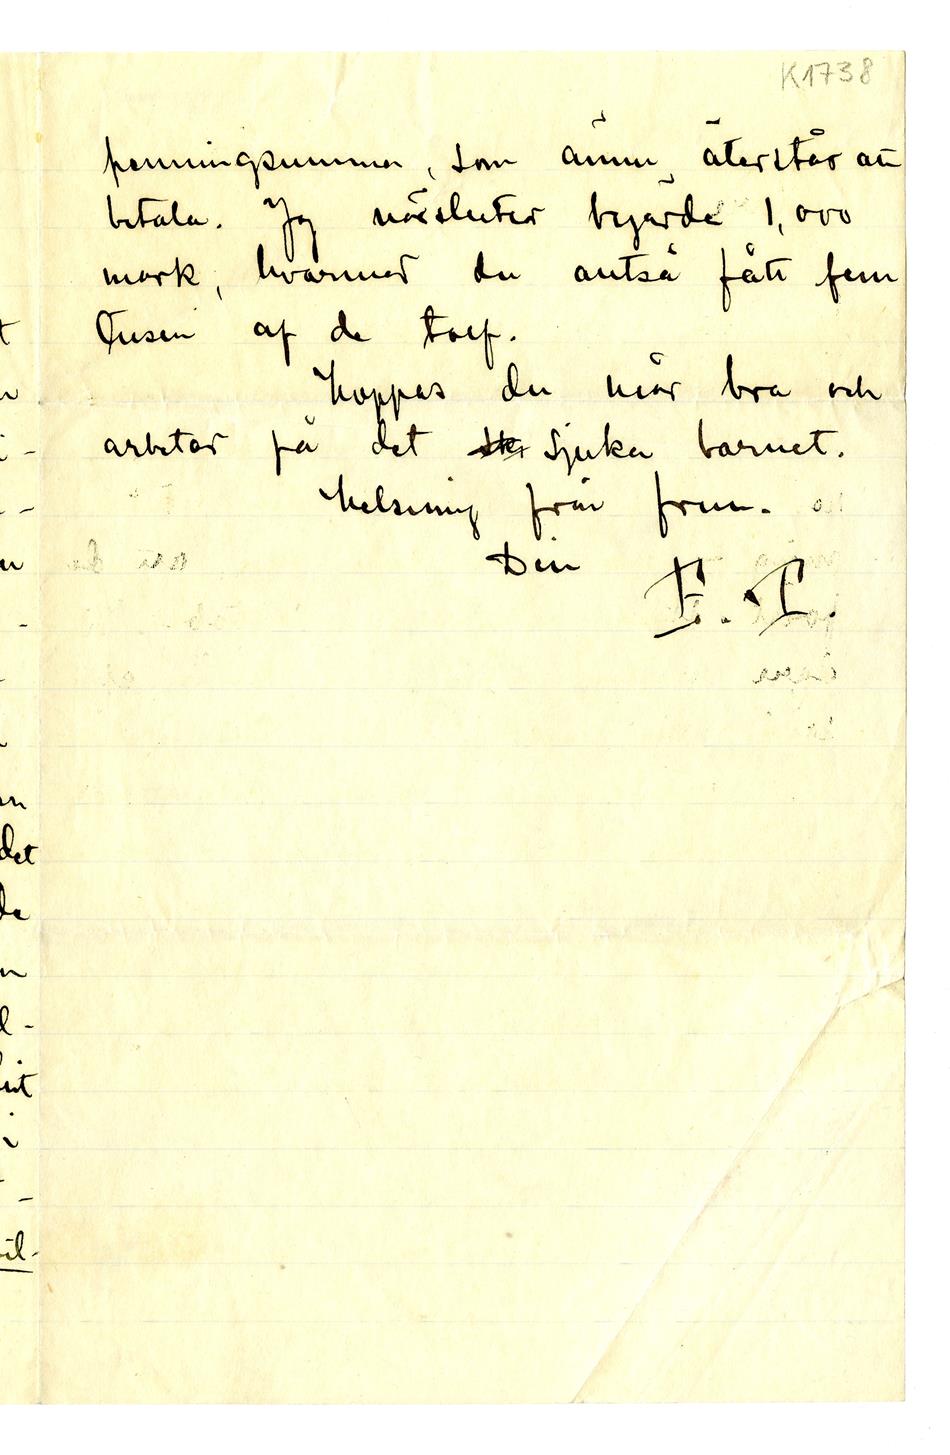 K1738
penningsumman, som ännu återstår att
betala. Jag närsluter begärda 1,000
mark, hvarmed du alltså fått fem
tusen af de tolf.
Hoppas du mår bra och
arbetar på det sjuka barnet.
Helsning från frun.
Din
E. T.